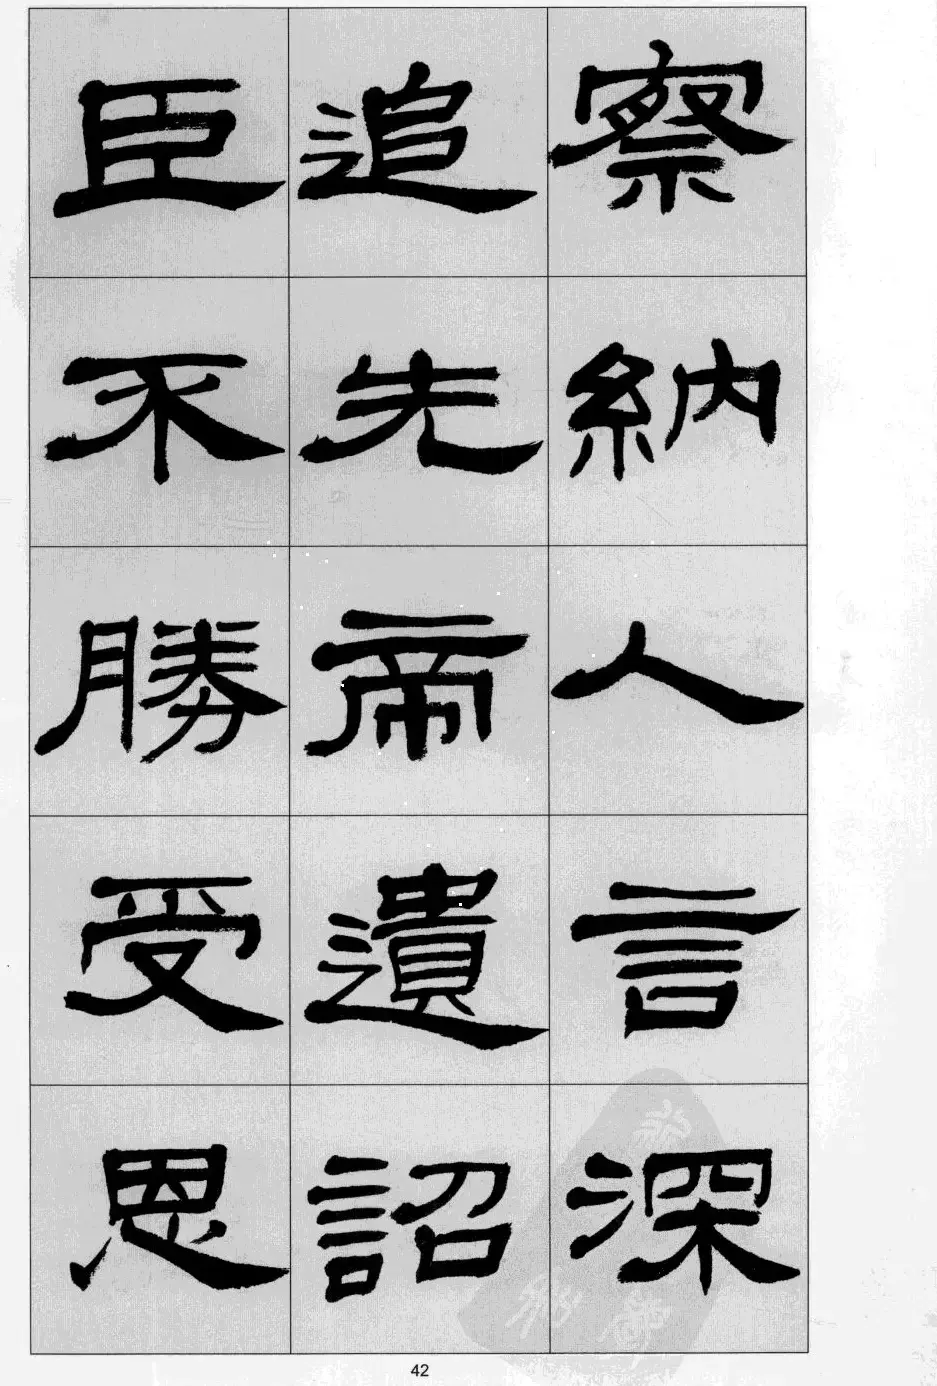 察納人言深
追先帝遺詔
臣不勝受恩
42